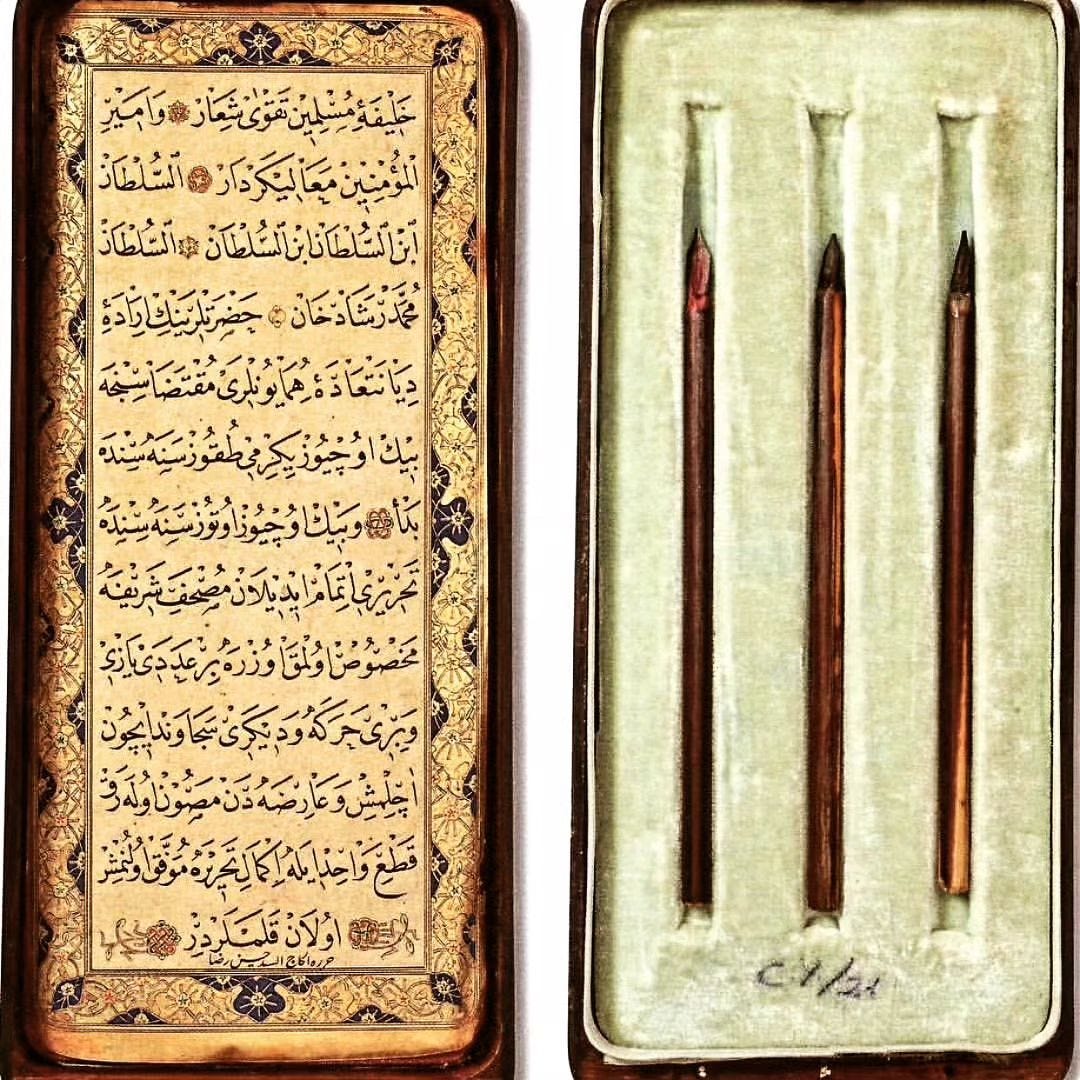 خَلِيفَهٔ مُسْلِمِينْ تَقْوٰى شِعَارْ وَامَيِرْ
الْمُؤْمِنِينْ مَعَالِيكَرْدَارْ اَلسُّلْطَانْ
ابْنْ السُّلْطَانْ ابْنْ السُّلْطَانْ اَلسُّلْطَانْ
مُحَمَّدْ رَشَادْ خَانْ حَضْرَتْلَرِينِكْ اِرَادَهٔ
دِيَانَتْعَادَهٔ هُمَايُونْلَرِى مُقْتَضَاسِنْجَه
بِيكْ اوُچْيُوزْ يِكِرْمِى طُقُوزْ سَنَهسِنْدَه
بَدْأ وَبِيكْ اوُچْيُوزْ اوُتُوزْ سَنَهسِنْدَه
تَحْرِيرِى اِتْمَامْ ايدِيلَانْ مُصْحَفِ شَرِيفَه
مَخْصُوصْ اوُلْمَقْ اوُزْرَه بِرْ عَدَدِى يَازِى
وَبِرِى حَرَكَه وَدِيكَرِى سَجَاوَنْدْ ايچُونْ
اَچِلْمِشْ وَعَارِضَهدَنْ مَصُونْ اوُلَهرَقْ
قَطْعِ وَاحِدْ ايلَه اِكْمَالِ تَحْرِيرَه مُوَفَّقْ اوُلُنْمِشْ
اوُلَانْ قَلَمْلَرْدِرْ
حرره الحاج السيد حسين رضا